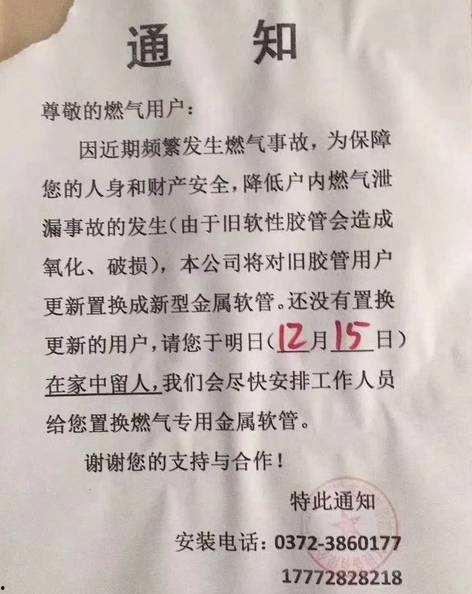 通 知
尊敬的燃气用户:
因近期频繁发生燃气事故,为保障
您的人身和财产安全,降低户内燃气泄
漏事故的发生(由于旧软性胶管会造成
氧化、破损),本公司将对旧胶管用户
更新置换成新型金属软管。还没有置换
更新的用户,请您于明日(12月15日)
在家中留人,我们会尽快安排工作人员
给您置换燃气专用金属软管。
谢谢您的支持与合作!
特此通知
安装电话:0372-3860177
17772828218